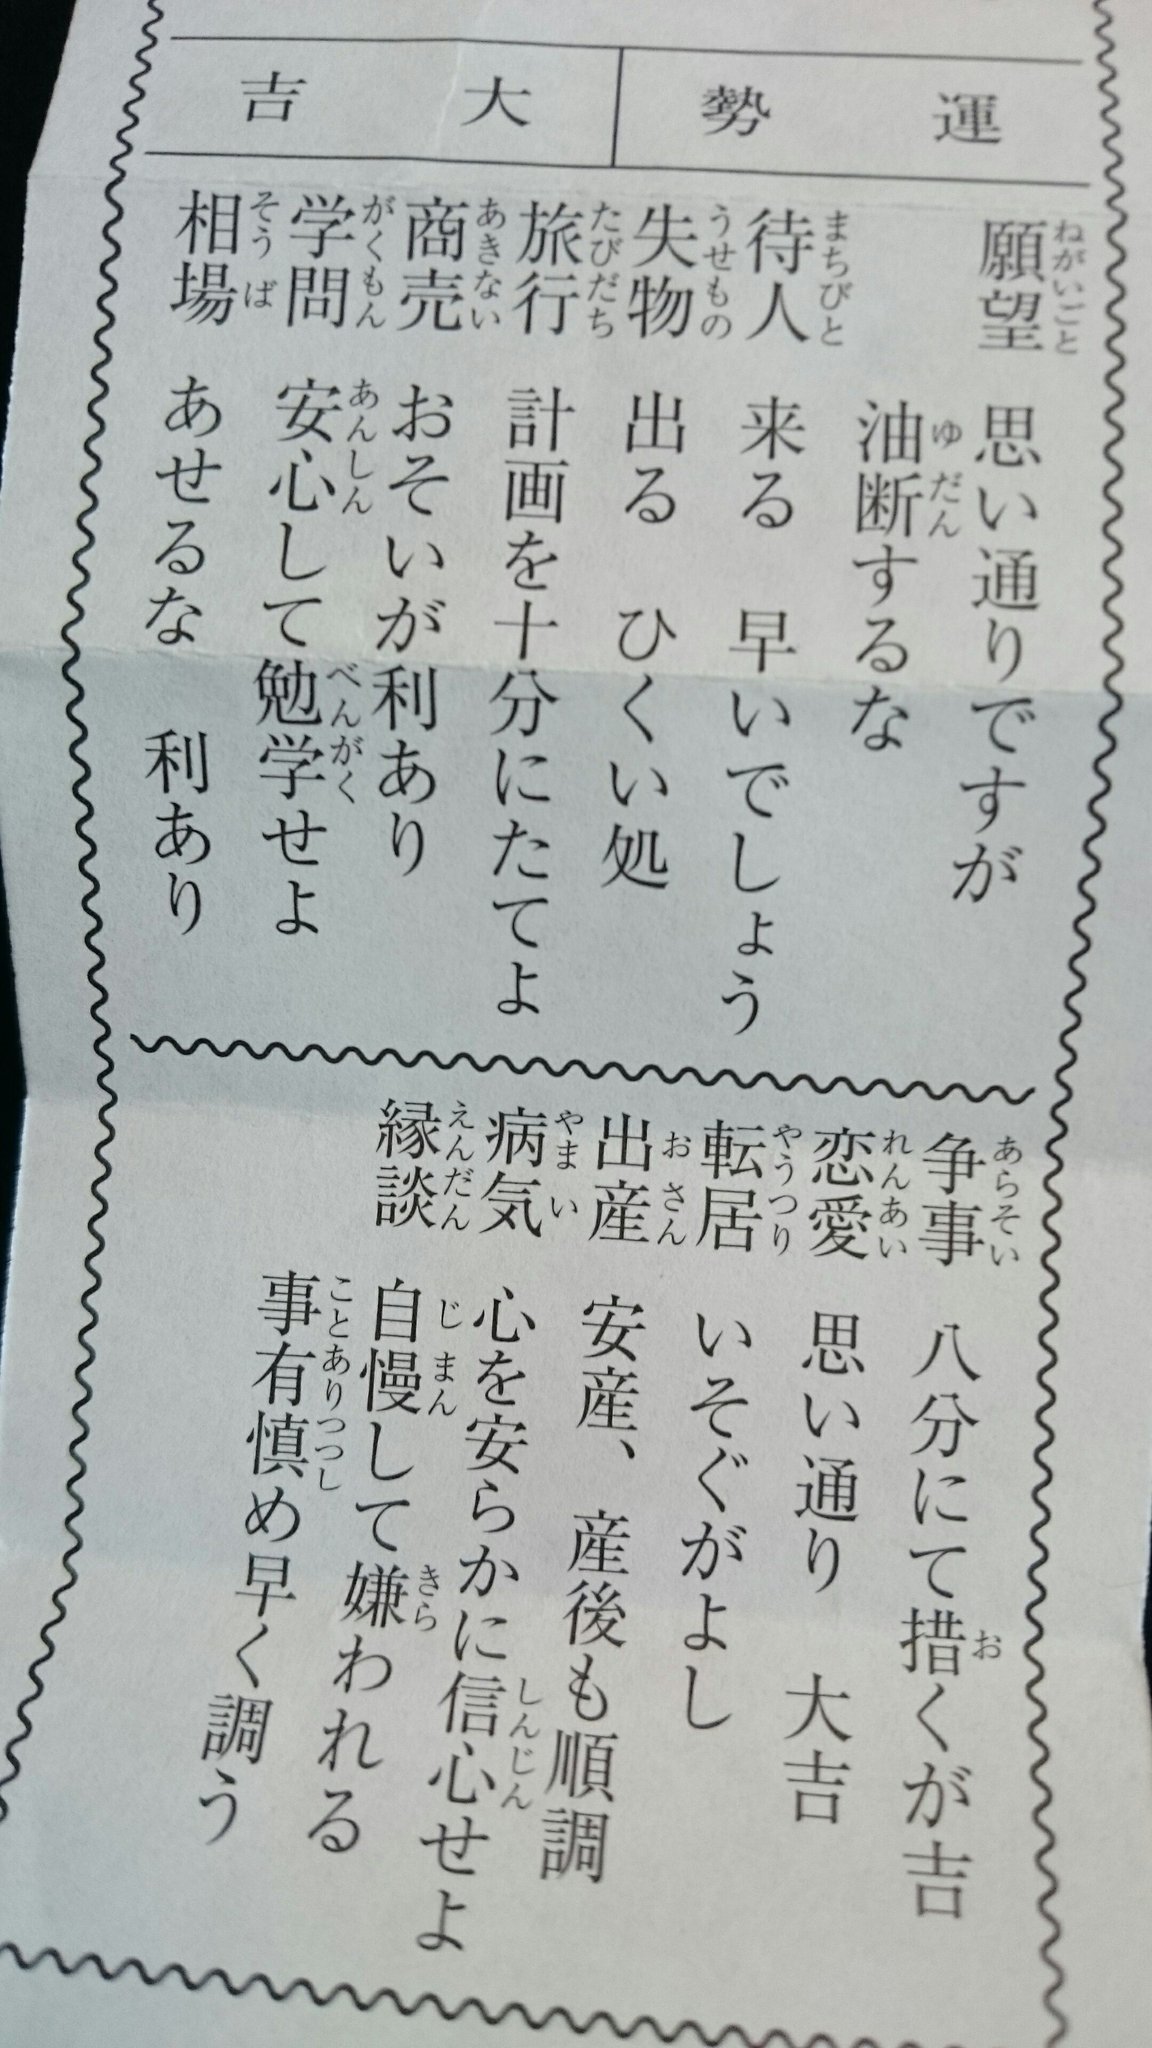 運勢 大吉
願望 思い通りですが
油断するな
待人 来る 早いでしょう
失物 出る ひくい処
旅行 計画を十分にたてよ
商売 おそいが利あり
学問 安心して勉学せよ
相場 あせるな 利あり
争事 八分にて措くが吉
恋愛 思い通り 大吉
転居 いそぐがよし
出産 安産、産後も順調
病気 心を安らかに信心せよ
縁談 自慢して嫌われる
事有慎め早く調う
ねがいごと
ゆだん
まちびと
うせもの
たびだち
あきない
がくもん
あんしん べんがく
そうば
あらそい お
れんあい
やうつり
おさん
やまい しんじん
えんだん じまん きら
ことありつつし